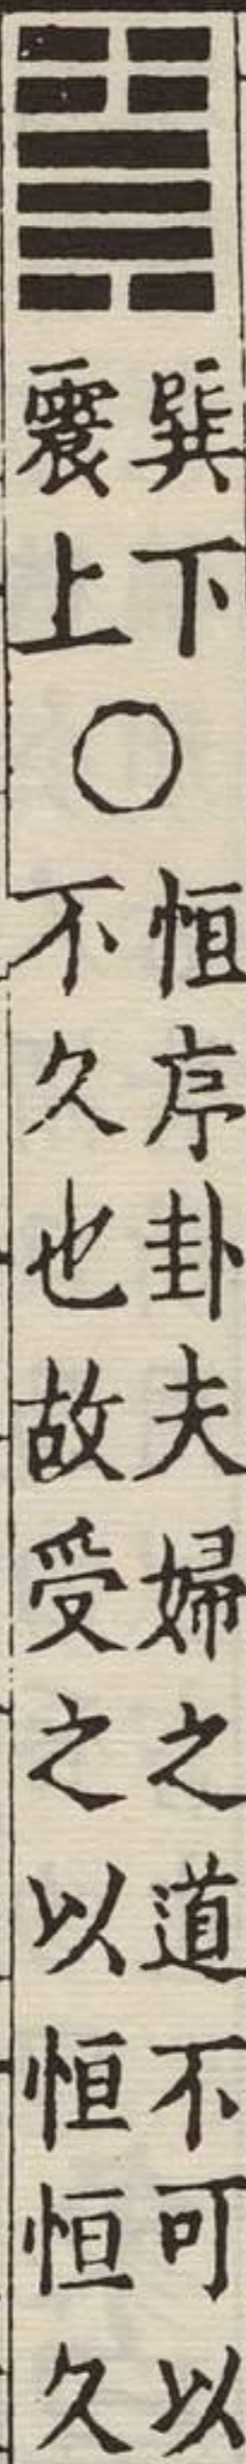 巽下
震上
○
恒序卦夫婦之道不可以
不久也故受之以恒恒久